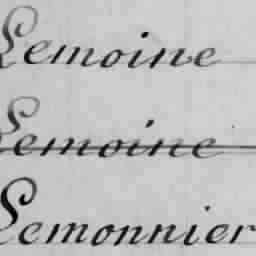 Lemoine
Lemoine
Lemonnier